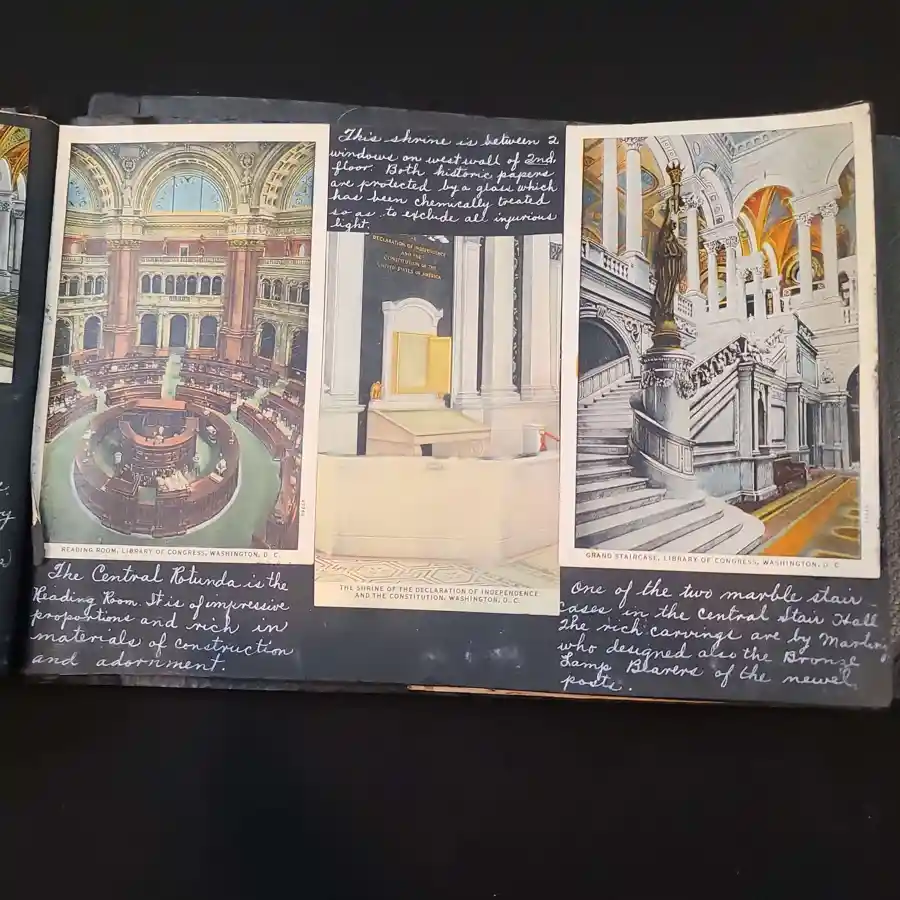 This shrine is between 2
windows on west wall of 2nd.
floor. Both historic papers
are protected by a glass which
has been chemically treated
so as to exclude all injurious
light.
DECLARATION OF INDEPENDENCE
AND THE
CONSTITUTION OF THE
UNITED STATES OF AMERICA
READING ROOM, LIBRARY OF CONGRESS, WASHINGTON, D. C.
The Central Rotunda is the
Reading Room. It is of impressive
proportions and rich in
materials of construction
and adornment.
THE SHRINE OF THE DECLARATION OF INDEPENDENCE
AND THE CONSTITUTION, WASHINGTON, D. C.
GRAND STAIRCASE, LIBRARY OF CONGRESS, WASHINGTON, D. C.
One of the two marble stair
cases in the Central Stair Hall
The rich carvings are by Martiny
who designed also the Bronze
Lamp Bearers of the newel
posts.